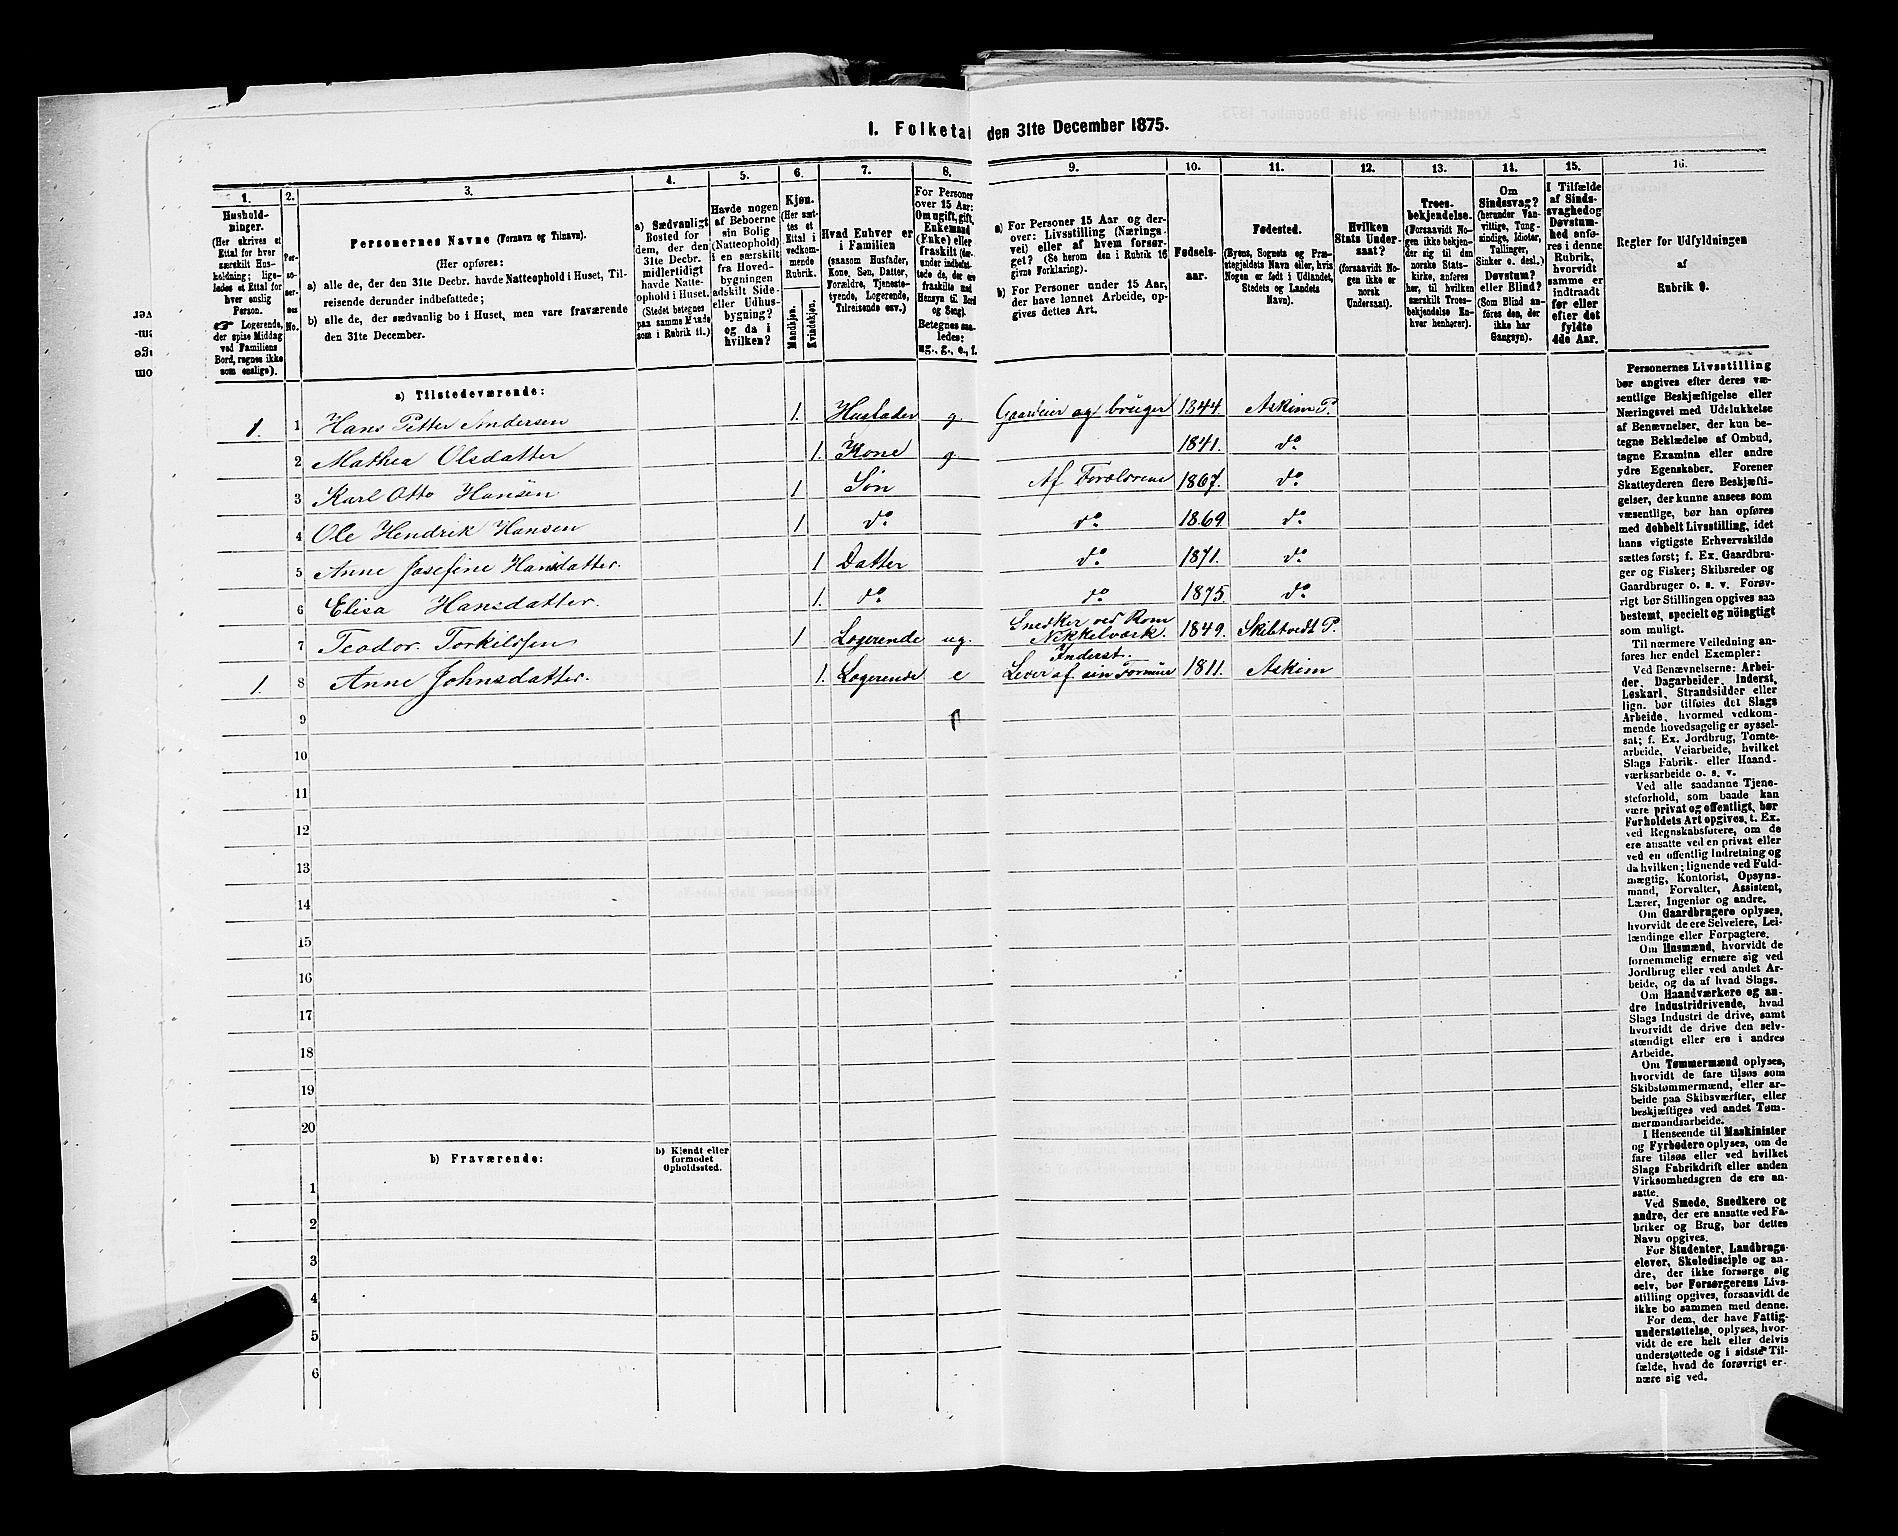 1. Folketal den 31te December 1875.
1. 2. 3. 4. 5. 6. 7. 8. 9. 10. 11. 12. 13. 14. 15. 16.
Hushold-
ninger.
(Her skrives et
Ettal for hver
særskilt Hus-
holdning; lige-
ledes et Ettal for
hver enslig
Person.
☞ Logerende,
der spise Middag
ved Familiens
Bord, regnes ikke
som enslige).
Per-
so-
ner-
nes
No.
Personernes Navne (Fornavn og Tilnavn).
(Her opføres:
a) alle de, der den 31te Decbr. havde Natteophold i Huset, Til-
reisende derunder indbefattede;
b) alle de, der sædvanlig bo i Huset, men vare fraværende
den 31te December.
a) Sædvanligt
Bosted for
dem, der den
31te Decbr.
midlertidigt
havde Natte-
ophold i Huset.
(Stedet betegnes
paa samme Maade
som i Rubrik 11.)
Havde nogen
af Beboerne
sin Bolig
(Natteophold)
i en særskilt
fra Hoved-
bygningen
adskilt Side-
eller Udhus-
bygning?
og da i
hvilken?
Kjøn.
(Her sæt-
tes et
Ettal i
vedkom-
mende
Rubrik.
Mandkjøn.
Kvindekjøn.
Hvad Enhver er
i Familien
(saasom Husfader,
Kone, Søn, Datter,
Forældre, Tjeneste-
tyende, Logerende,
Tilreisende osv.)
For Personer
over 15 Aar:
Om ugift, gift,
Enkemand
(Enke) eller
fraskilt (der-
under indbefat-
tede de, der ere
fraskilte med
Hensyn til Bord
og Seng).
Betegnes saa-
ledes:
ug., g., e., f.
a) For Personer 15 Aar og der-
over: Livsstilling (Nærings-
vei) eller af hvem forsør-
get? (Se herom den i Rubrik 16
givne Forklaring).
b) For Personer under 15 Aar,
der have lønnet Arbeide, op-
gives dettes Art.
Fødsels-
aar.
Fødested.
(Byens, Sognets og Præ-
stegjeldets Navn eller, hvis
Nogen er født i Udlandet,
Stedets og Landets
Navn).
Hvilken
Stats Under-
saat?
(forsaavidt No-
gen ikke er
norsk
Undersaat).
Troes-
bekjendelse.
(Forsaavidt No-
gen ikke bekjen-
der sig til den
norske Stats-
kirke, anføres
her, til hvilken
særskilt Troes-
bekjendelse En-
hver henhører).
Om
Sindssvag?
(herunder Van-
vittige, Tung-
sindige, Idioter,
Tullinger,
Sinker o. desl.)
Døvstum?
eller Blind?
(Som Blind an-
føres den, der
ikke har
Gangsyn).
I Tilfælde
af Sinds-
svaghed og
Døvstum-
hed anfø-
res i denne
Rubrik,
hvorvidt
samme er
indtraadt
før eller
efter det
fyldte
4de Aar.
Regler for Udfyldningen
af
Rubrik 9.
a) Tilstedeværende:
1. 1 Hans Petter Andersen 1. Husfader g. Gaardeier og bruger 1844. Askim P.
2 Mathea Olsdatter 1. Kone g. 1841. do
3 Karl Otto Hansen 1 Søn Af Forældrene 1867. do
4 Ole Hendrik Hansen 1 do do 1869 do
5 Anne Josefine Hansdatter. 1 Datter do 1871. do
6 Elisa Hansdatter. 1. do do 1875 do
7 Teodor. Torkelssen 1 Logerende ug. Snedker ved Rom Nikkelværk. 1849. Skibtvedt P.
1. 8 Anne Johnsdatter. 1. Logerende e Inderst. Lever af. sin Formue 1811. Askim
9
10
11
12
13
14
15
16
17
18
19
20
b) Fraværende:
b) Kjendt eller
formodet
Opholdssted.
1
2
3
4
5
6
Personernes Livsstilling
bør angives efter deres væ-
sentlige Beskjæftigelse eller
Næringsvei med Udelukkelse
af Benævnelser, der kun be-
tegne Beklædelse af Ombud,
tagne Examina eller andre
ydre Egenskaber. Forener
Skatteyderen flere Beskjæfti-
gelser, der kunne ansees som
væsentlige, bør han opføres
med dobbelt Livsstilling, idet
hans vigtigste Erhvervskilde
sættes først; f. Ex. Gaardbru-
ger og Fisker; Skibsreder og
Gaardbruger o. s. v. Forøv-
rigt bør Stillingen opgives saa
bestemt, specielt og nöiagtigt
som muligt.
Til nærmere Veiledning an-
føres her endel Exempler:
Ved Benævnelserne: Arbei-
der, Dagarbeider, Inderst,
Løskarl, Strandsidder eller
lign. bør tilføies det Slags
Arbeide, hvormed vedkom-
mende hovedsagelig er syssel-
sat; f. Ex. Jordbrug, Tømte-
arbeide, Veiarbeide, hvilket
Slags Fabrik- eller Haand-
værksarbeide o. s. v.
Ved alle saadanne Tjene-
steforhold, som baade kan
være privat og offentligt, bør
Forholdets Art opgives, t. Ex.
ved Regnskabsførere, om de
ere ansatte ved en privat eller
ved en offentlig Indretning og
da hvilken; lignende ved Fuld-
mægtig, Kontorist, Opsyns-
mand, Forvalter, Assistent,
Lærer, Ingeniør og andre.
Om Gaardbrugere oplyses,
hvorvidt de ere Selveiere, Lei-
lændinge eller Forpagtere.
Om Husmænd, hvorvidt de
fornemmelig ernære sig ved
Jordbrug eller ved andet Ar-
beide, og da af hvad Slags.
Om Haandværkere og an-
dre Industridrivende, hvad
Slags Industri de drive, samt
hvorvidt de drive den selv-
stændigt eller ere i andres
Arbeide.
Om Tømmermænd oplyses,
hvorvidt de fare tilsøs som
Skibstømmermænd, eller ar-
beide paa Skibsværfter, eller
beskjæftiges ved andet Tøm-
mermandsarbeide.
I Henseende til Maskinister
og Fyrbødere oplyses, om de
fare tilsøs eller ved hvilket
Slags Fabrikdrift eller anden
Virksomhedsgren de ere an-
satte.
Ved Smede, Snedkere og
andre, der ere ansatte ved Fa-
briker og Brug, bør dettes
Navn opgives.
For Studenter, Landbrugs-
elever, Skoledisciple og an-
dre, der ikke forsørge sig
selv, bør Forsørgerens Livs-
stilling opgives, forsaavidt de
ikke bo sammen med denne.
For dem, der have Fattig-
understøttelse, oplyses, hvor-
vidt de ere helt eller delvis
understøttede og i sidste Til-
fælde, hvad de forøvrigt er-
nære sig ved.